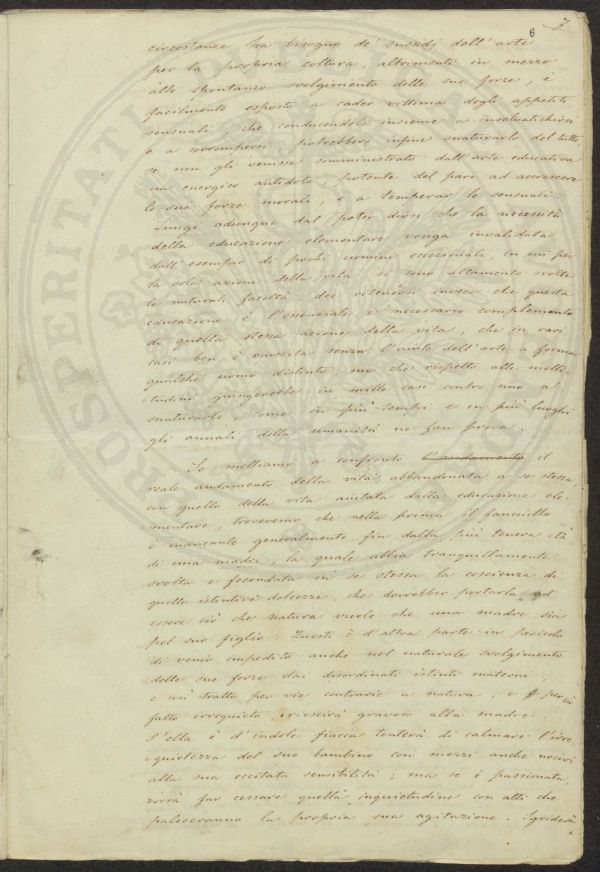 6 7
circostanze ha bisogno de' sussidj dell'arte
per la propria coltura, altrimenti in mezzo
allo spontaneo svolgimento delle sue forze, è
facilmente esposto a cader vittima degli appetiti
sensuali, che conducendolo insieme a inselvatichirsi
e a corrompersi, potrebbero infine snaturarlo del tutto,
se non gli venisse somministrato dall'arte educativa
un energico antidoto, potente del pari ad accrescere
le sue forze morali, e a temperar le sensuali.
Lungi adunque dal poter dirsi che la necessità
della educazione elementare venga invalidata
dall'esempio di pochi uomini eccezionali, in cui per
la sola azione della vita si sono altamente svolte
le naturali facoltà dee ritenersi invece che questa
educazione è l'essenziale e necessario complemento
di quella stessa azione della vita, che in rari
casi ben è riuscita senza l'aiuto dell'arte a formar
qualche uomo distinto, ma che rispetto alle molti-
-tudini giungerebbe in mille casi contro uno a
snaturarle, come in più tempi e in più luoghi
gli annali della umanità ne fan prova.
Se mettiamo a confronto l'andamento il
reale andamento della vita abbandonata a se stessa,
con quello della vita aiutata dalla educazione ele-
-mentare, troveremo che nella prima il fanciullo
è mancante generalmente fin dalla più tenera età
di una madre, la quale abbia tranquillamente
svolta e fecondata in se stessa la coscienza di
quelle istintive dolcezze, che dovrebber portarla ad
essere ciò che natura vuole che una madre sia
pel suo figlio. Questi è d'altra parte in pericolo
di venir impedito anche nel naturale svolgimento
delle sue forze dai disordinati istinti materni,
e così tratto per vie contrarie a natura, e perciò
fatto irrequieto, riescirà gravoso alla madre.
S'ella è d'indole fiacca tenterà di calmare l'irre-
-quietezza del suo bambino con mezzi anche nocivi
alla sua eccitata sensibilità; ma se è passionata,
vorrà far cessare quella inquietudine con atti che
paleseranno la propria sua agitazione. Sgriderà